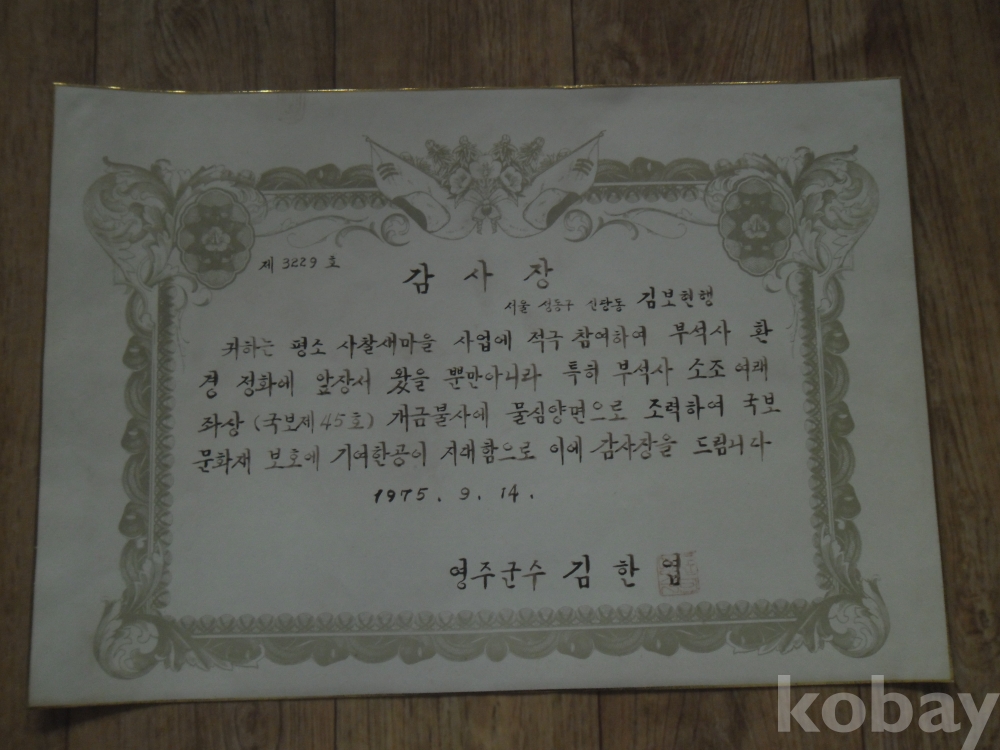 제 3229 호
감 사 장
서울 성동구 신당동 김보현행
귀하는 평소 사찰새마을 사업에 적극 참여하여 부석사 환
경 정화에 앞장서 왔을 뿐만아니라 특히 부석사 소조 여래
좌상 (국보제 45호) 개금불사에 물심양면으로 조력하여 국보
문화재 보호에 기여한공이 지대함으로 이에 감사장을 드립니다
1975. 9. 14.
영주군수 김 한 엽
kobay